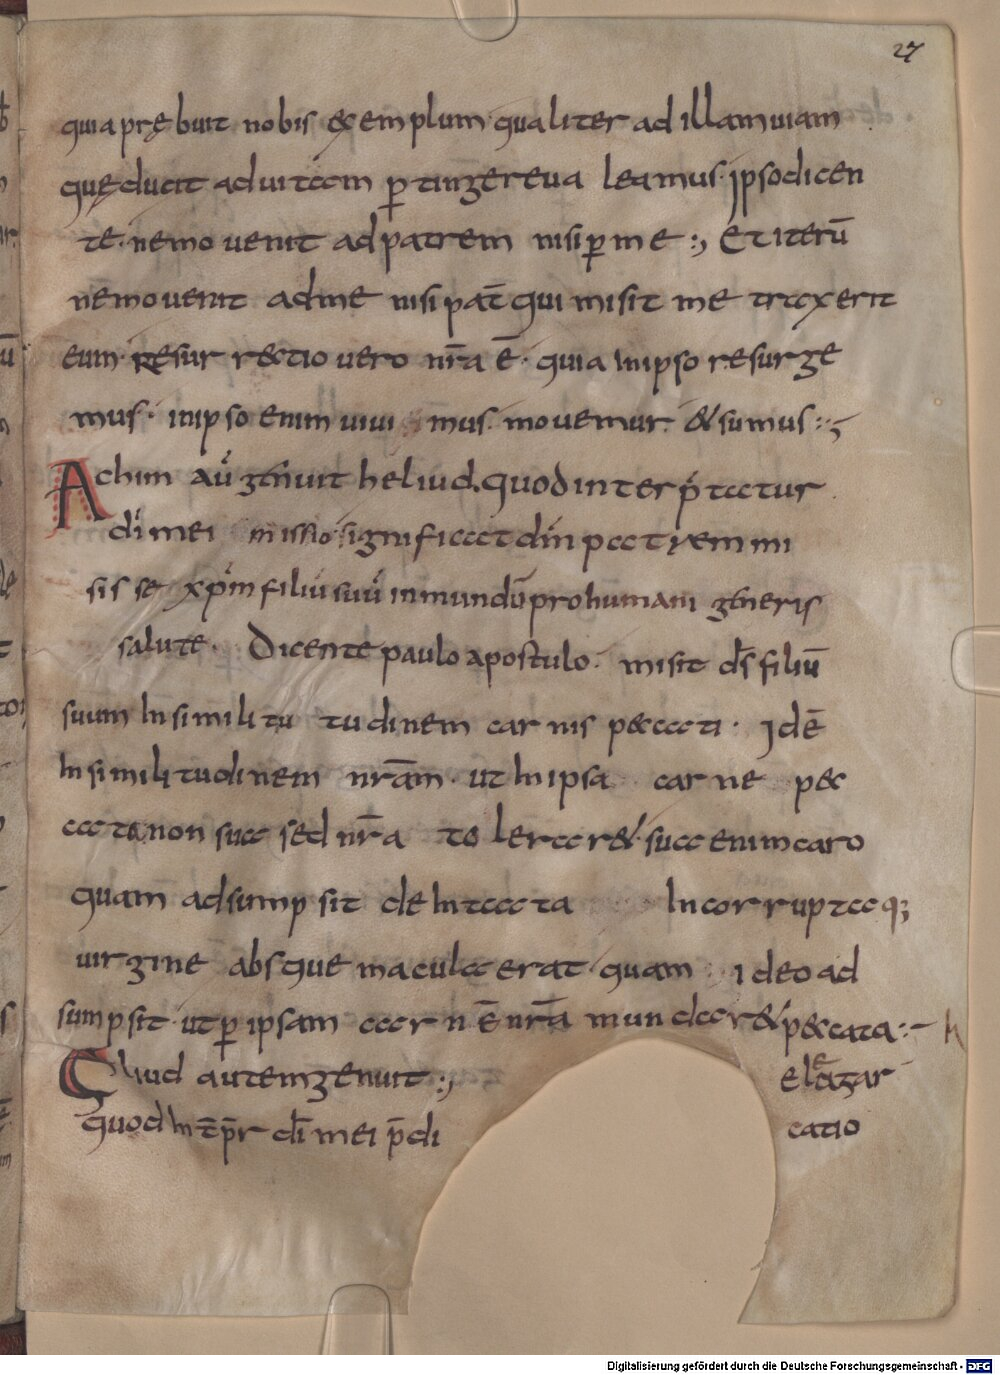 27
quia prębuit nobis & exemplum qualiter ad illam uiam
quę ducit ad uitam ꝑtingere ualeamus· ipso dicen
te· nemo uenit ad patrem nisi ꝑ me :, Et iterū
nemo uenit ad me nisi pat̄ qui misit me traxerit
eum· resurrectio uero nr̄a ē· quia in ipso resurge
mus· in ipso enim uiui mus· mouemur & sumus :,
Achim au᷑ gēnuit heliud· quod interp᷑tatur
dī mei missio· significat dn̄ patrem mi
sisse xp̄m filiū suū in mundū pro humani gēneris
salute· Dicente paulo apostulo· misit ds̄ filiū
suum In similitu tudinem carnis peccati· Idē
In similitudinem nr̄am· ut In ipsa carne pec
cata non sua sed nr̄a tolerar&· sua enim caro
quam adsumpsit de Intacta Incorruptaq;
uirgine absque macula erat quam ideo ad
sumpsit ut ꝑ ipsam carnē nr̄a mundar& peccata :-
Eliud autem genuit :, eleazar
quod Int̄p̄r dī mei p̄di catio
Digitalisierung gefördert durch die Deutsche Forschungsgemeinschaft - DFG